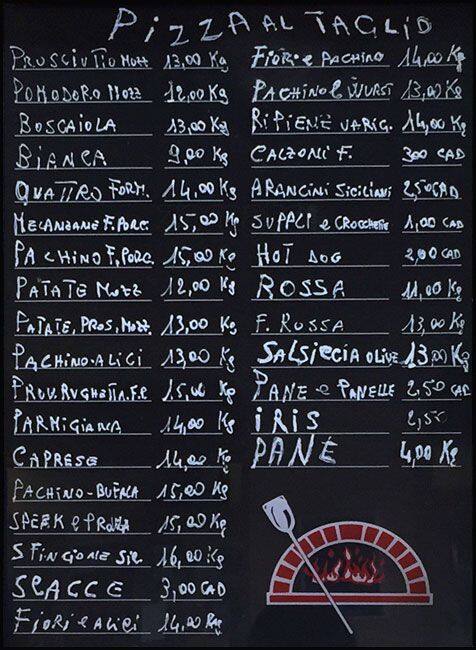 PIZZA AL TAGLIO
PROSCIUTTO MOZZ 13,00 Kg
POMODORO MOZZ 12,00 Kg
BOSCAIOLA 13,00 Kg
BIANCA 9,00 Kg
QUATTRO FORM. 14,00 Kg
MELANZANE F. PORC. 15,00 Kg
PACHINO F. PORC. 15,00 Kg
PATATE MOZZ 12,00 Kg
PATATE, PROS, MOZZ. 13,00 Kg
PACHINO-ALICI 13,00 Kg
PROV. RUGHETTA. F.P. 15,00 Kg
PARMIGIANA 14,00 Kg
CAPRESE 14,00 Kg
PACHINO-BUFALA 15,00 Kg
SPEEK e PROVOLA 15,00 Kg
SFINCIONE SIC. 16,00 Kg
SCACCE 3,00 CAD
FIORI e ALICI 14,00 Kg
FIORI e PACHINO 14,00 Kg
PACHINO e WURST 13,00 Kg
RIPIENE VARIG. 14,00 Kg
CALZONI F. 300 CAD
ARANCINI SICILIANI 2,50 CAD
SUPPLI e CROCCHETTE 1,00 CAD
HOT DOG 2,00 CAD
ROSSA 11,00 Kg
F. ROSSA 13,00 Kg
SALSICCIA OLIVE 13,00 Kg
PANE e PANELLE 2,50 CAD
IRIS 2,50
PANE 4,00 Kg